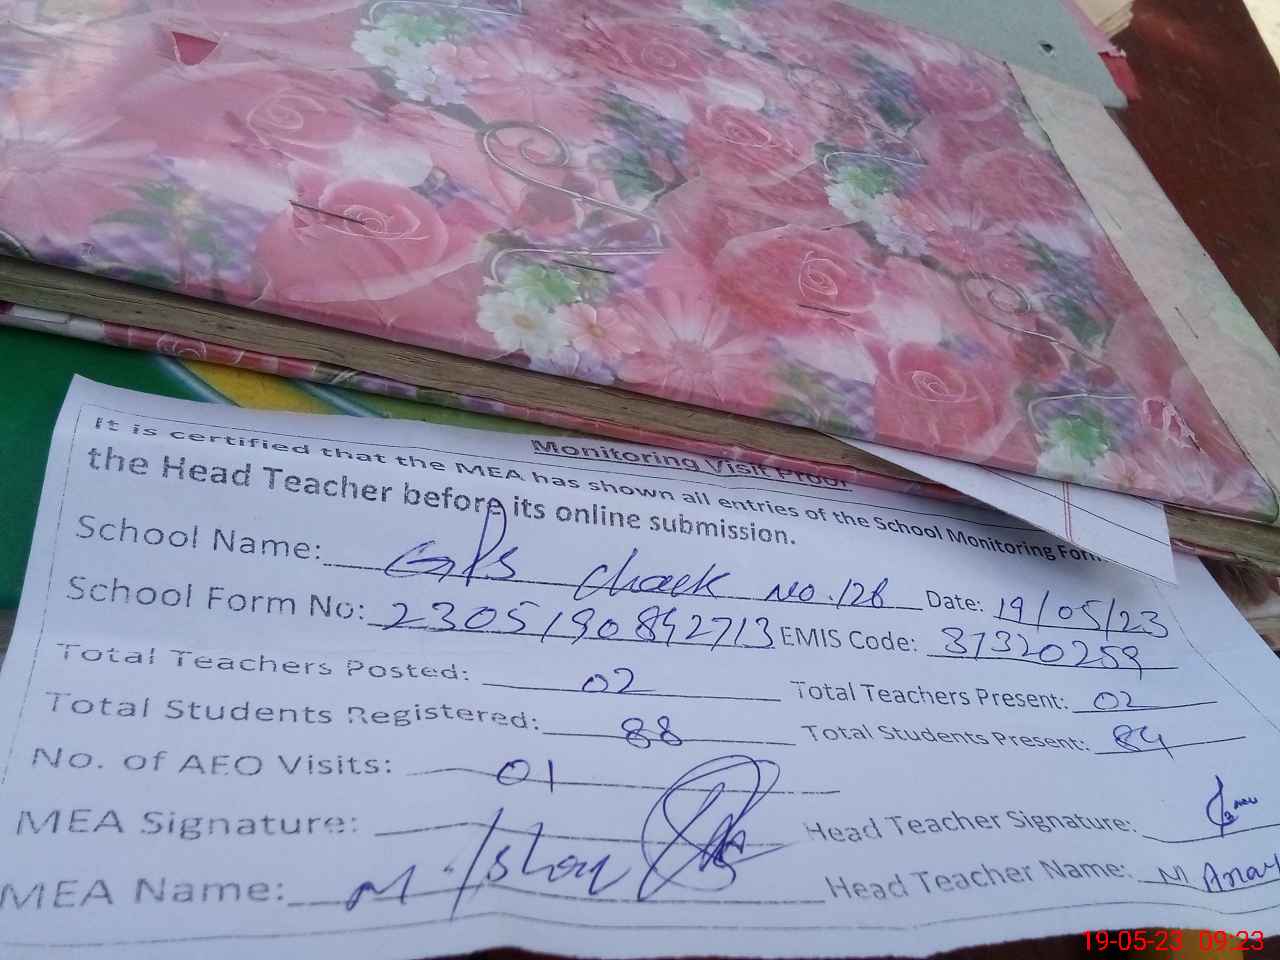 Monitoring Visit Proof
It is certified that the MEA has shown all entries of the School Monitoring Form
the Head Teacher before its online submission.
School Name: GPS Chack No. 128 Date: 19/05/23
School Form No: 2305190842713 EMIS Code: 31320259
Total Teachers Posted: 02 Total Teachers Present: 02
Total Students Registered: 88 Total Students Present: 84
No. of AEO Visits: 01
MEA Signature: Head Teacher Signature:
MEA Name: M Head Teacher Name: M
19-05-23 09:23